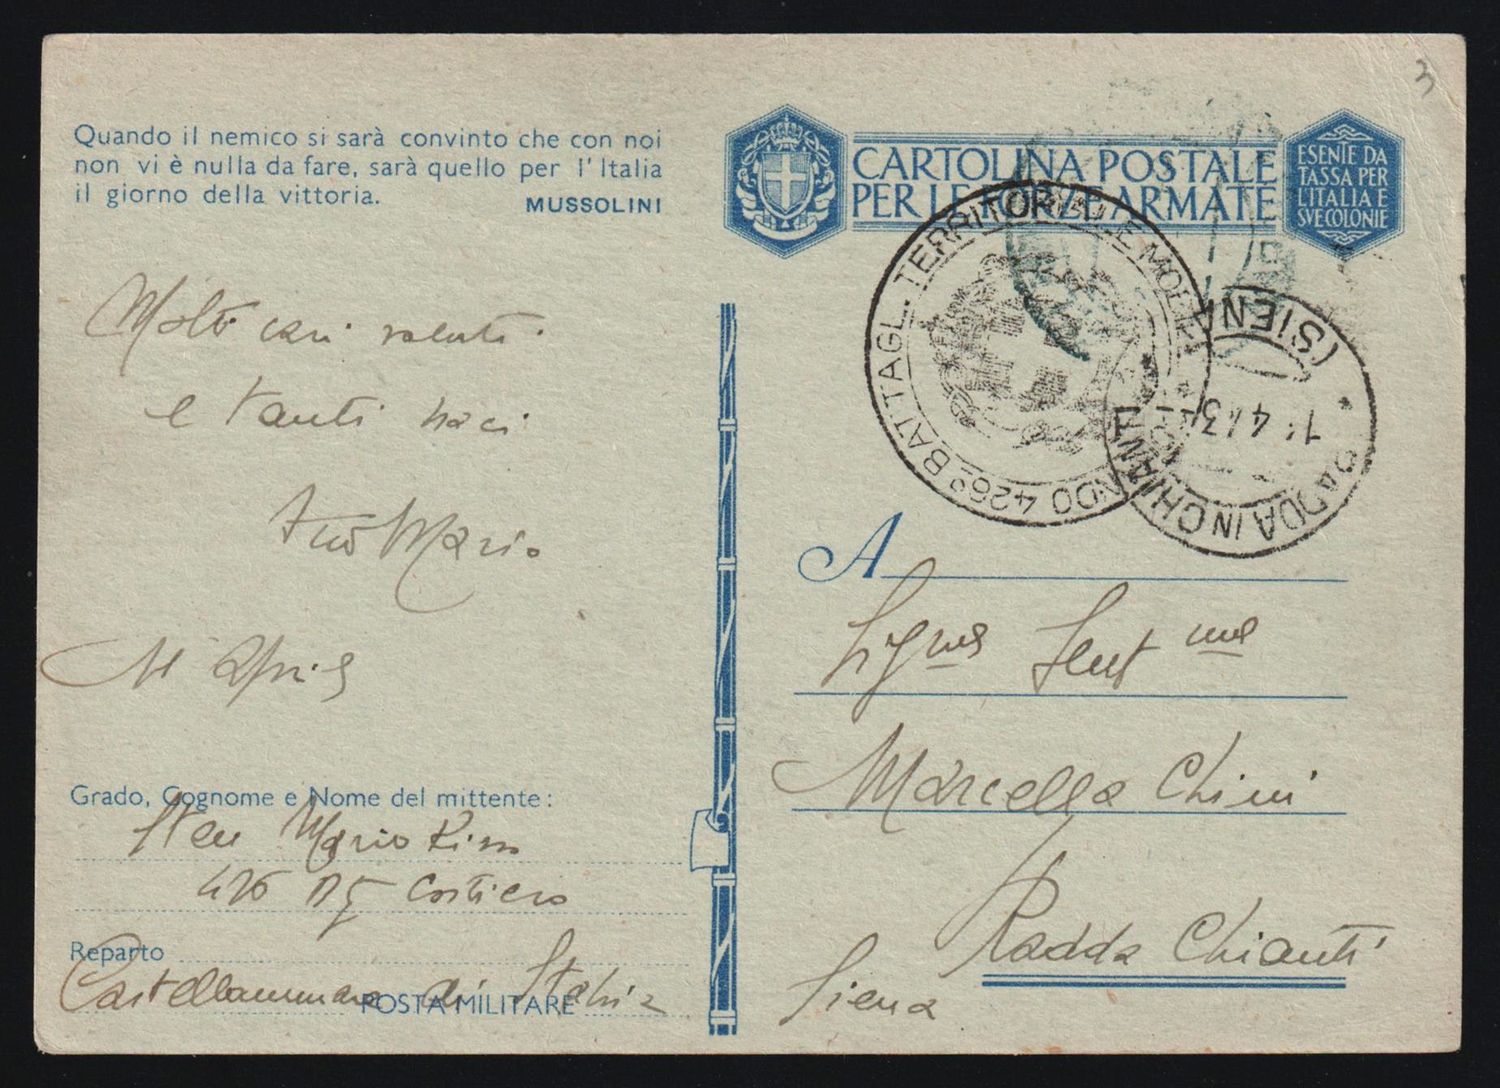 3
Quando il nemico si sarà convinto che con noi
non vi è nulla da fare, sarà quello per l'Italia
il giorno della vittoria.
MUSSOLINI
CARTOLINA POSTALE
PER LE FORZE ARMATE
ESENTE DA
TASSA PER
L'ITALIA E
SVE COLONIE
426º BATTAGL. TERRITORIALE MOBILE
RADDA IN CHIANTI
(SIENA)
1 4 43
Molti cari saluti
e tanti baci
tuo Mario
Grado, Cognome e Nome del mittente:
Mario
426 Costiero
Reparto
Castellammare di Stabia
POSTA MILITARE
A
Marcella Chini
Radda Chianti
Siena